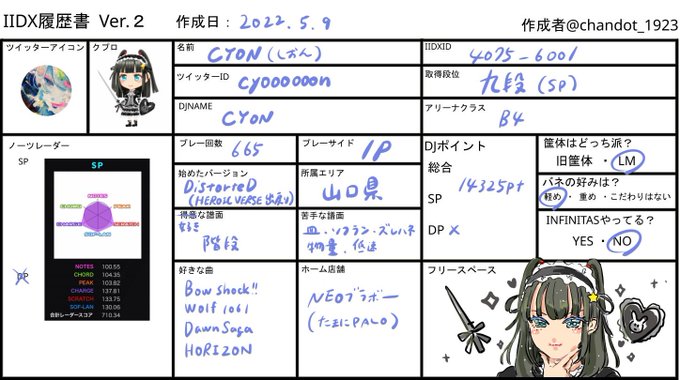 IIDX履歴書 Ver.2
作成日：2022.5.9
作成者@chandot_1923
ツイッターアイコン
クプロ
名前
CYON(しおん)
IIDXID
4075-6001
ツイッターID
cyoooooon
取得段位
九段(SP)
DJNAME
CYON
アリーナクラス
B4
ノーツレーダー
SP
DP
SP
NOTES
CHORD
PEAK
CHARGE
SCRATCH
SOF-LAN
NOTES 100.55
CHORD 104.35
PEAK 103.82
CHARGE 137.81
SCRATCH 133.75
SOF-LAN 130.06
合計レーダースコア 710.34
プレー回数
665
プレーサイド
1P
始めたバージョン
DistorteD
(HEROIC VERSE出戻り)
所属エリア
山口県
得意な譜面
好き
階段
苦手な譜面
皿・ソフラン・ズレハネ
物量、低速
好きな曲
Bow shock!!
Wolf 1061
Dawn Saga
HORIZON
ホーム店舗
NEOブラボー
(たまにPALO)
DJポイント
総合
14325pt
SP
DP ×
筐体はどっち派？
旧筐体 ・ LM
バネの好みは？
軽め ・ 重め ・こだわりはない
INFINITASやってる？
YES ・ NO
フリースペース